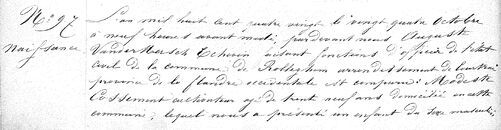 No 97
Naissance
L'an mil huit cent quatre vingt le vingt quatre Octobre
à neuf heures avant midi, pardevant nous Auguste
Vandermersch Echevin faisant fonctions d'officier de l'état
civil de la commune de Rolleghem arrondissement de Courtrai
province de la flandre occidentale est comparu: Modeste
Cossement cultivateur agé de trente neuf ans domicilié en cette
commune; lequel nous a présenté un enfant du sexe masculin